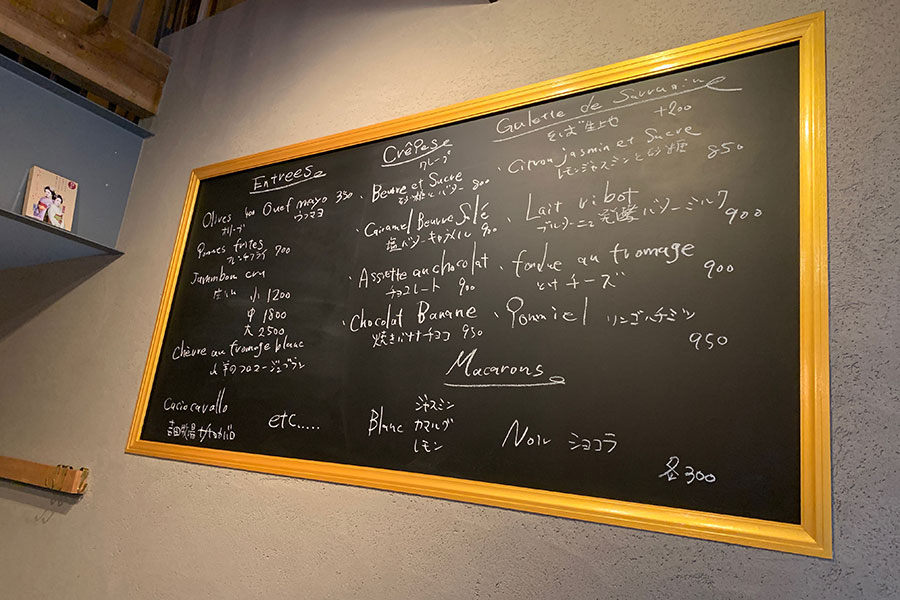 Entrees
Olives
オリーブ
Oeuf mayo 350
ウフマヨ
Pommes frites
フレンチフライ 700
Jammbon cru
生ハム 小 1200
中 1800
大 2500
Chèvre au fromage blanc
山羊のフロマージュブラン
Caciocavallo
吉田牧場 カチョカバロ
etc.....
Crêpes
クレープ
・Beurre et Sucre
砂糖とバター 800
・Caramel Beurre Salé
塩バターキャラメル 900
・Assiette au chocolat
チョコレート 900
・Chocolat Banane
焼きバナナチョコ 950
Galette de Sarrasin
そば生地 +200
・Citron jasmin et Sucre
レモンジャスミンと砂糖 850
・Lait ribot
ブルターニュ発酵バターミルク
900
・fondue au fromage
とけチーズ 900
・Pommiel リンゴハチミツ
950
Macarons
Blanc ジャスミン
カマルグ
レモン
Noir ショコラ
各300